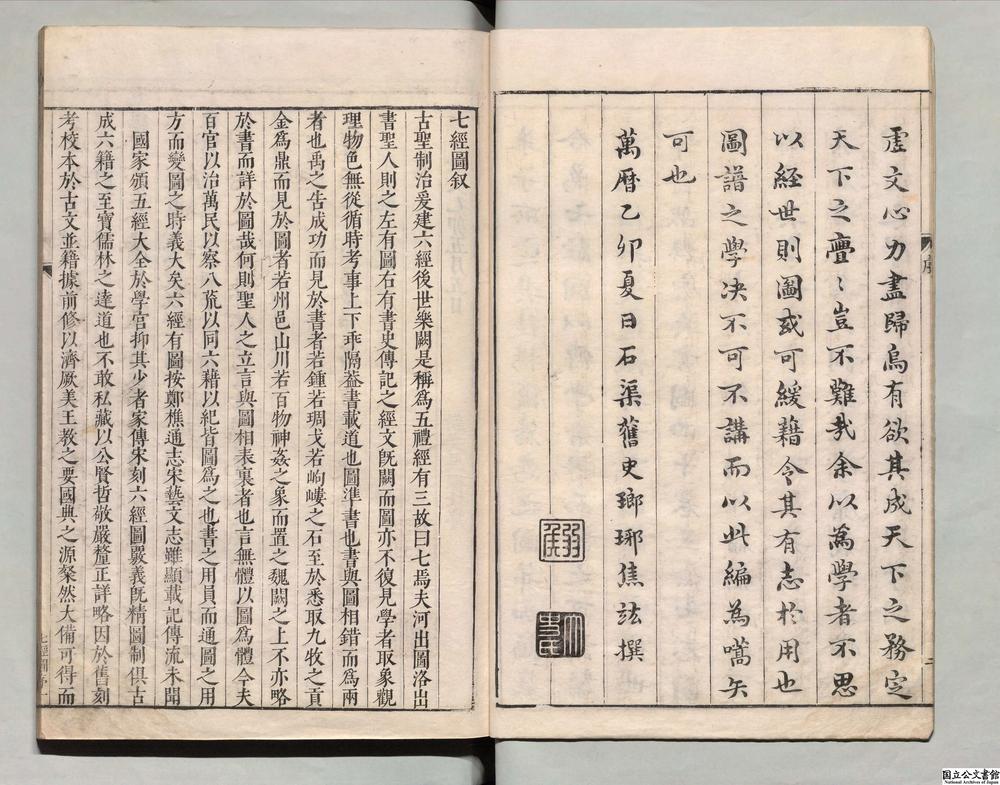 虗文心力盡歸烏有欲其成天下之務定
天下之亹〻豈不難哉余以為學者不思
以経世則圖或可緩藉令其有志於用也
圖譜之學决不可不講而以此編為嚆矢
可也
萬曆乙卯夏日石渠舊史瑯琊焦竑撰
七經圖叙
古聖制治爰建六經後世樂闕是稱爲五禮經有三故曰七焉夫河出圖洛出
書聖人則之左有圖右有書史傳記之經文旣闕而圖亦不復見學者取象觀
理物色無從循時考事上下乖隔葢書載道也圖準書也書與圖相錯而爲兩
者也禹之告成功而見於書者若鍾若琱戈若岣嶁之石至於悉取九牧之貢
金爲鼎而見於圖者若州邑山川若百物神姦之象而置之魏闕之上不亦略
於書而詳於圖哉何則聖人之立言與圖相表裏者也言無體以圖爲體今夫
百官以治萬民以察八䟽以同六藉以紀皆圖爲之也書之用員而通圖之用
方而變圖之時義大矣六經有圖按鄭樵通志宋藝文志雖顯載記傳流未聞
國家頒五經大全於學官抑其少者家傳宋刻六經圖嚴義旣精圖制俱古
成六籍之至寶儒林之達道也不敢私藏以公賢哲敬嚴釐正詳略因於舊刻
考校本於古文並籍據前修以濟厥美王教之要國典之源粲然大備可得而
序
二
七經圖序
一
国立公文書館
National Archives of Japan